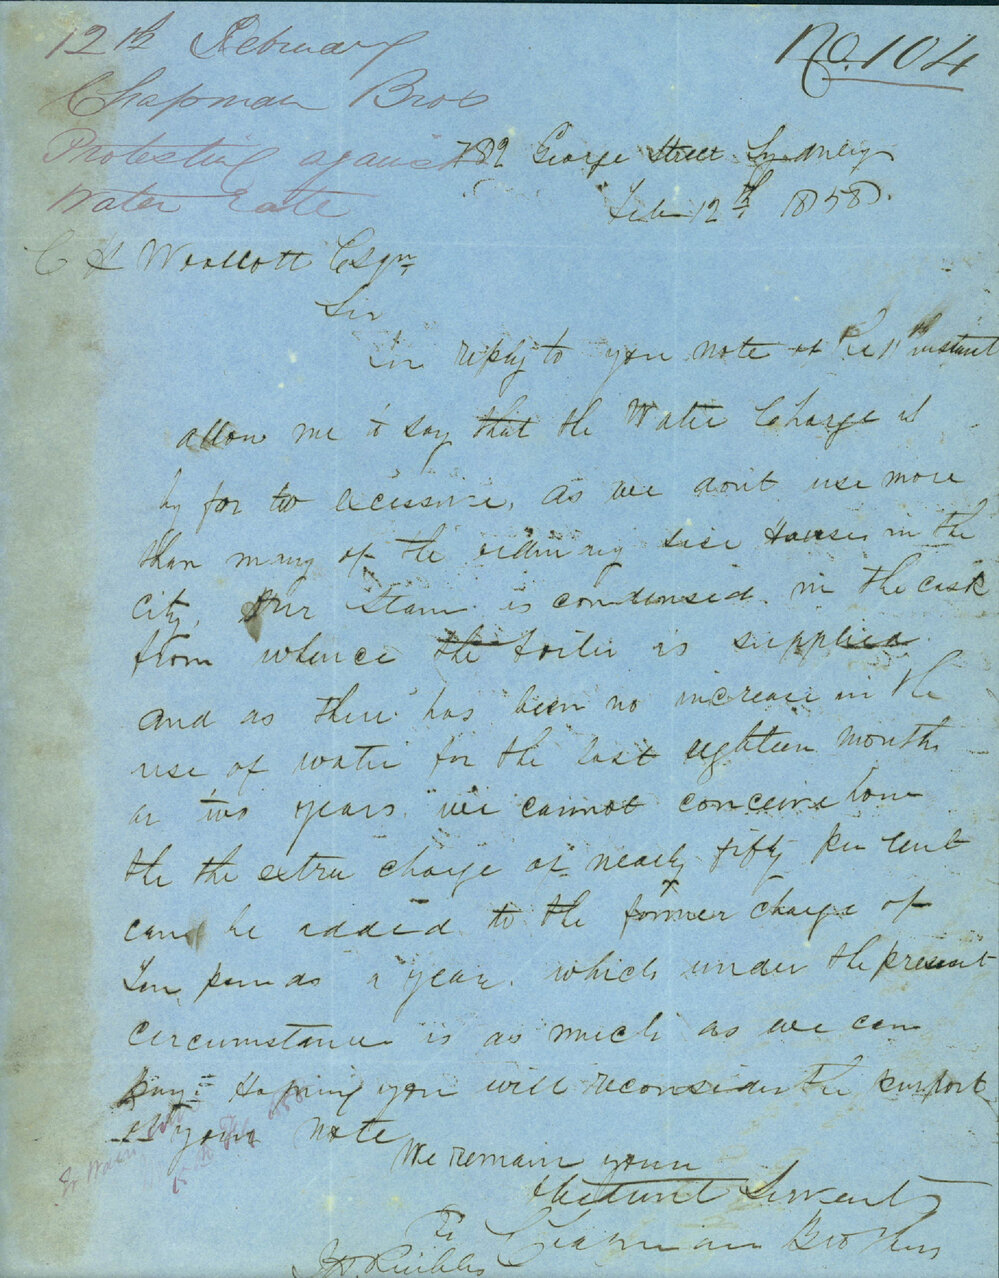 12th February
Chapman Bros
Protesting against
Water Rate
No. 104
782 George Street Sydney
Feb 12th 1858.
C H Woolcott Esqr
Sir
In reply to your note of the 1st instant
allow me to say that the Water Charge is
by far to excessive, as we dont use more
than many of the ordinary size Houses in the
City. Our Steam is condensed in the cask
from whence the boiler is supplied
and as there has been no increase in the
use of water for the last eighteen months
or two years we cannot conceive how
the the extra charge of nearly fifty per cent
can be added to the former charge of
Ten pounds a year. which under the present
circumstance is as much as we can
pay. Hoping you will reconsider the purport
of your note
We remain your
Obedient Servants
Chapman Brothers